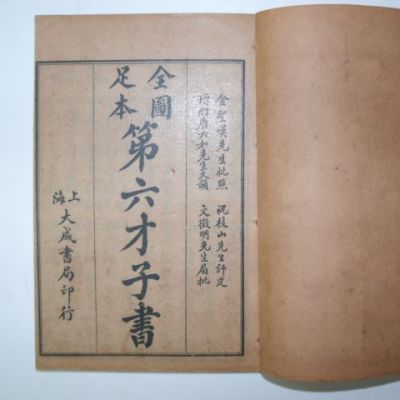 金聖嘆先生批點　祝枝山先生評定
增附唐六如先生文韻　文徵明先生眉批
全圖
足本
第六才子書
上海大成書局印行